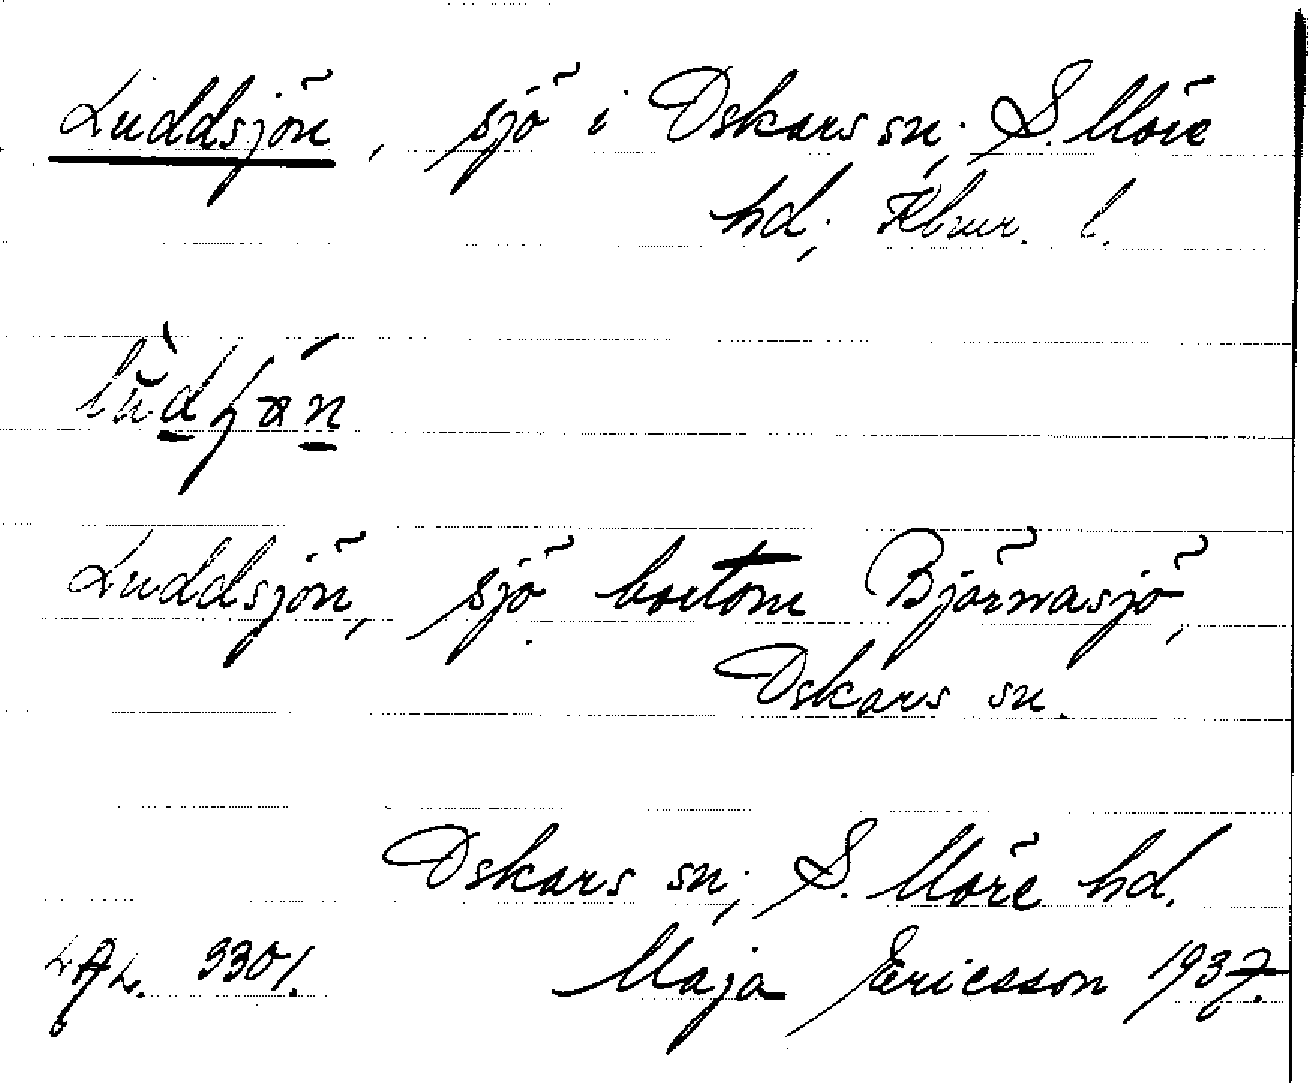 Luddsjön, sjö i Oskars sn., S. Möre
hd., Klmr. l.
Luddsjön, sjö bortom Björnasjö,
Oskars sn.
Oskars sn., S. Möre hd.
LAL. 3301. Maja Ericsson 1937.